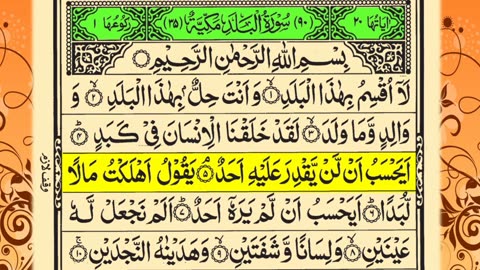 اٰیَاتُهَا ۲۰ (۹۰) سُوْرَةُ الْبَلَدِ مَكِّيَّةٌ (۳۵) رُكُوْعُهَا ۱
بِسْمِ اللّٰهِ الرَّحْمٰنِ الرَّحِيْمِ
لَاۤ اُقْسِمُ بِهٰذَا الْبَلَدِ ۙ۱ وَاَنْتَ حِلٌّۢ بِهٰذَا الْبَلَدِ ۙ۲ وَ
وَالِدٍ وَّمَا وَلَدَ ۙ۳ لَقَدْ خَلَقْنَا الْاِنْسَانَ فِيْ كَبَدٍ ؕ۴
اَيَحْسَبُ اَنْ لَّنْ يَّقْدِرَ عَلَيْهِ اَحَدٌ ۘ۵ يَقُوْلُ اَهْلَكْتُ مَالًا
وقف لازم
لُّبَدًا ؕ۶ اَيَحْسَبُ اَنْ لَّمْ يَرَهٗۤ اَحَدٌ ؕ۷ اَلَمْ نَجْعَلْ لَّهٗ
عَيْنَيْنِ ۙ۸ وَلِسَانًا وَّشَفَتَيْنِ ۙ۹ وَهَدَيْنٰهُ النَّجْدَيْنِ ۚ۱۰